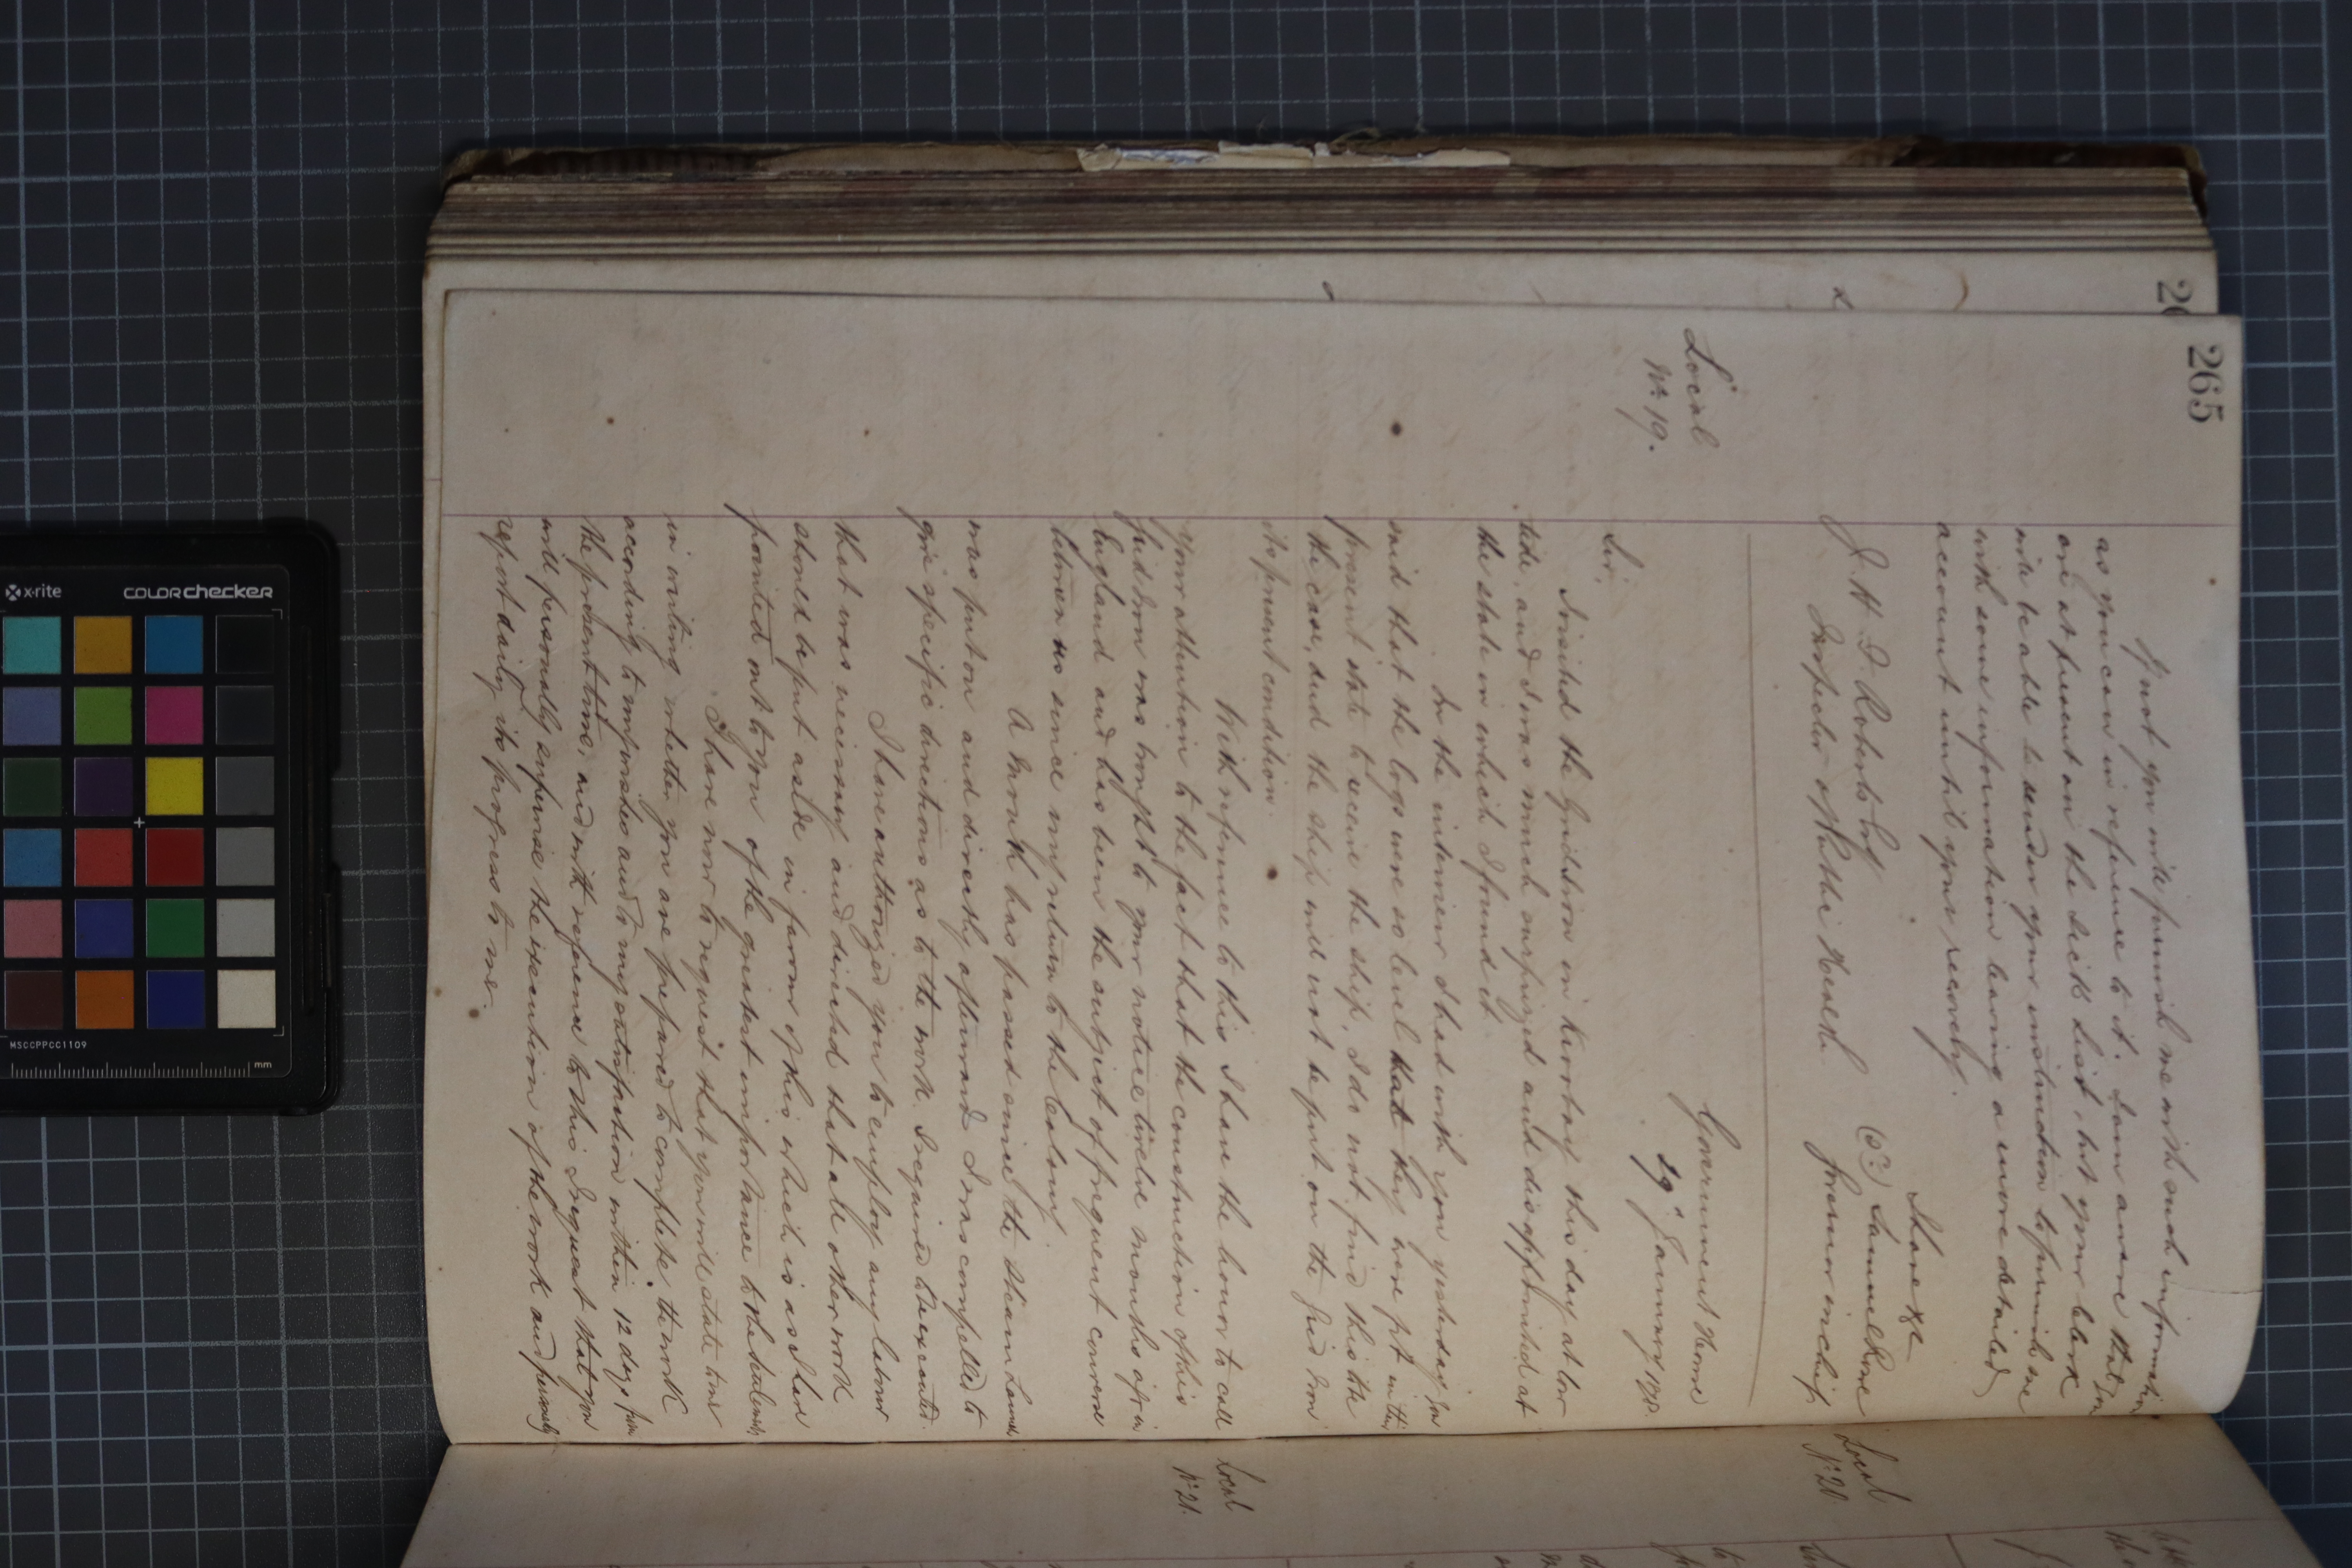 265
If not you will furnish me with such information
as you can in reference to it. I am aware that you
are at present on the Sick List, but your Clerk
will be able to under your instruction to furnish me
with some information leaving a more detailed
account until your recovery.
I have &c
(Sd.) Samuel Rowe
J. H. Roberts Esq
Inspector of Public Health
Governor in chief
Local
No. 19.
Government House
29" January 188
Sir,
I visited the Gridiron in this day at low
tide, and I was much surprized and disappointed at
the state in which I found it.
In the interview I had with you yesterday you
said that the logs were so level that they were fit in their
present state to receive the ship, I do not find this the
the case, and the ship will not be put on the Grid Iron
its present condition.
With reference to this I have the honor to call
your attention to the fact that the construction of this
Grid Iron was brought to your notice twelve months ago in
England and has been the subject of frequent converse
between us since my return to the Colony.
A month has passed since the Steam Launch
was put on and directly afterwards I was compelled to
give specific directions as to the work I required to be executed.
I have authorized you to employ any labour
that was necessary and directed that all other work
should be put aside in favour of this which is as I have
pointed out to you of the greatest importance to the Settlements
I have now to request that you will state to me
in writing whether you are prepared to complete the work
according to my wishes and to my satisfaction within 12 days from
the present time, and with reference to this I request that you
will personally supervise the execution of the work and personally
report daily its progress to me.
Local
No. 20
Local
No. 21.